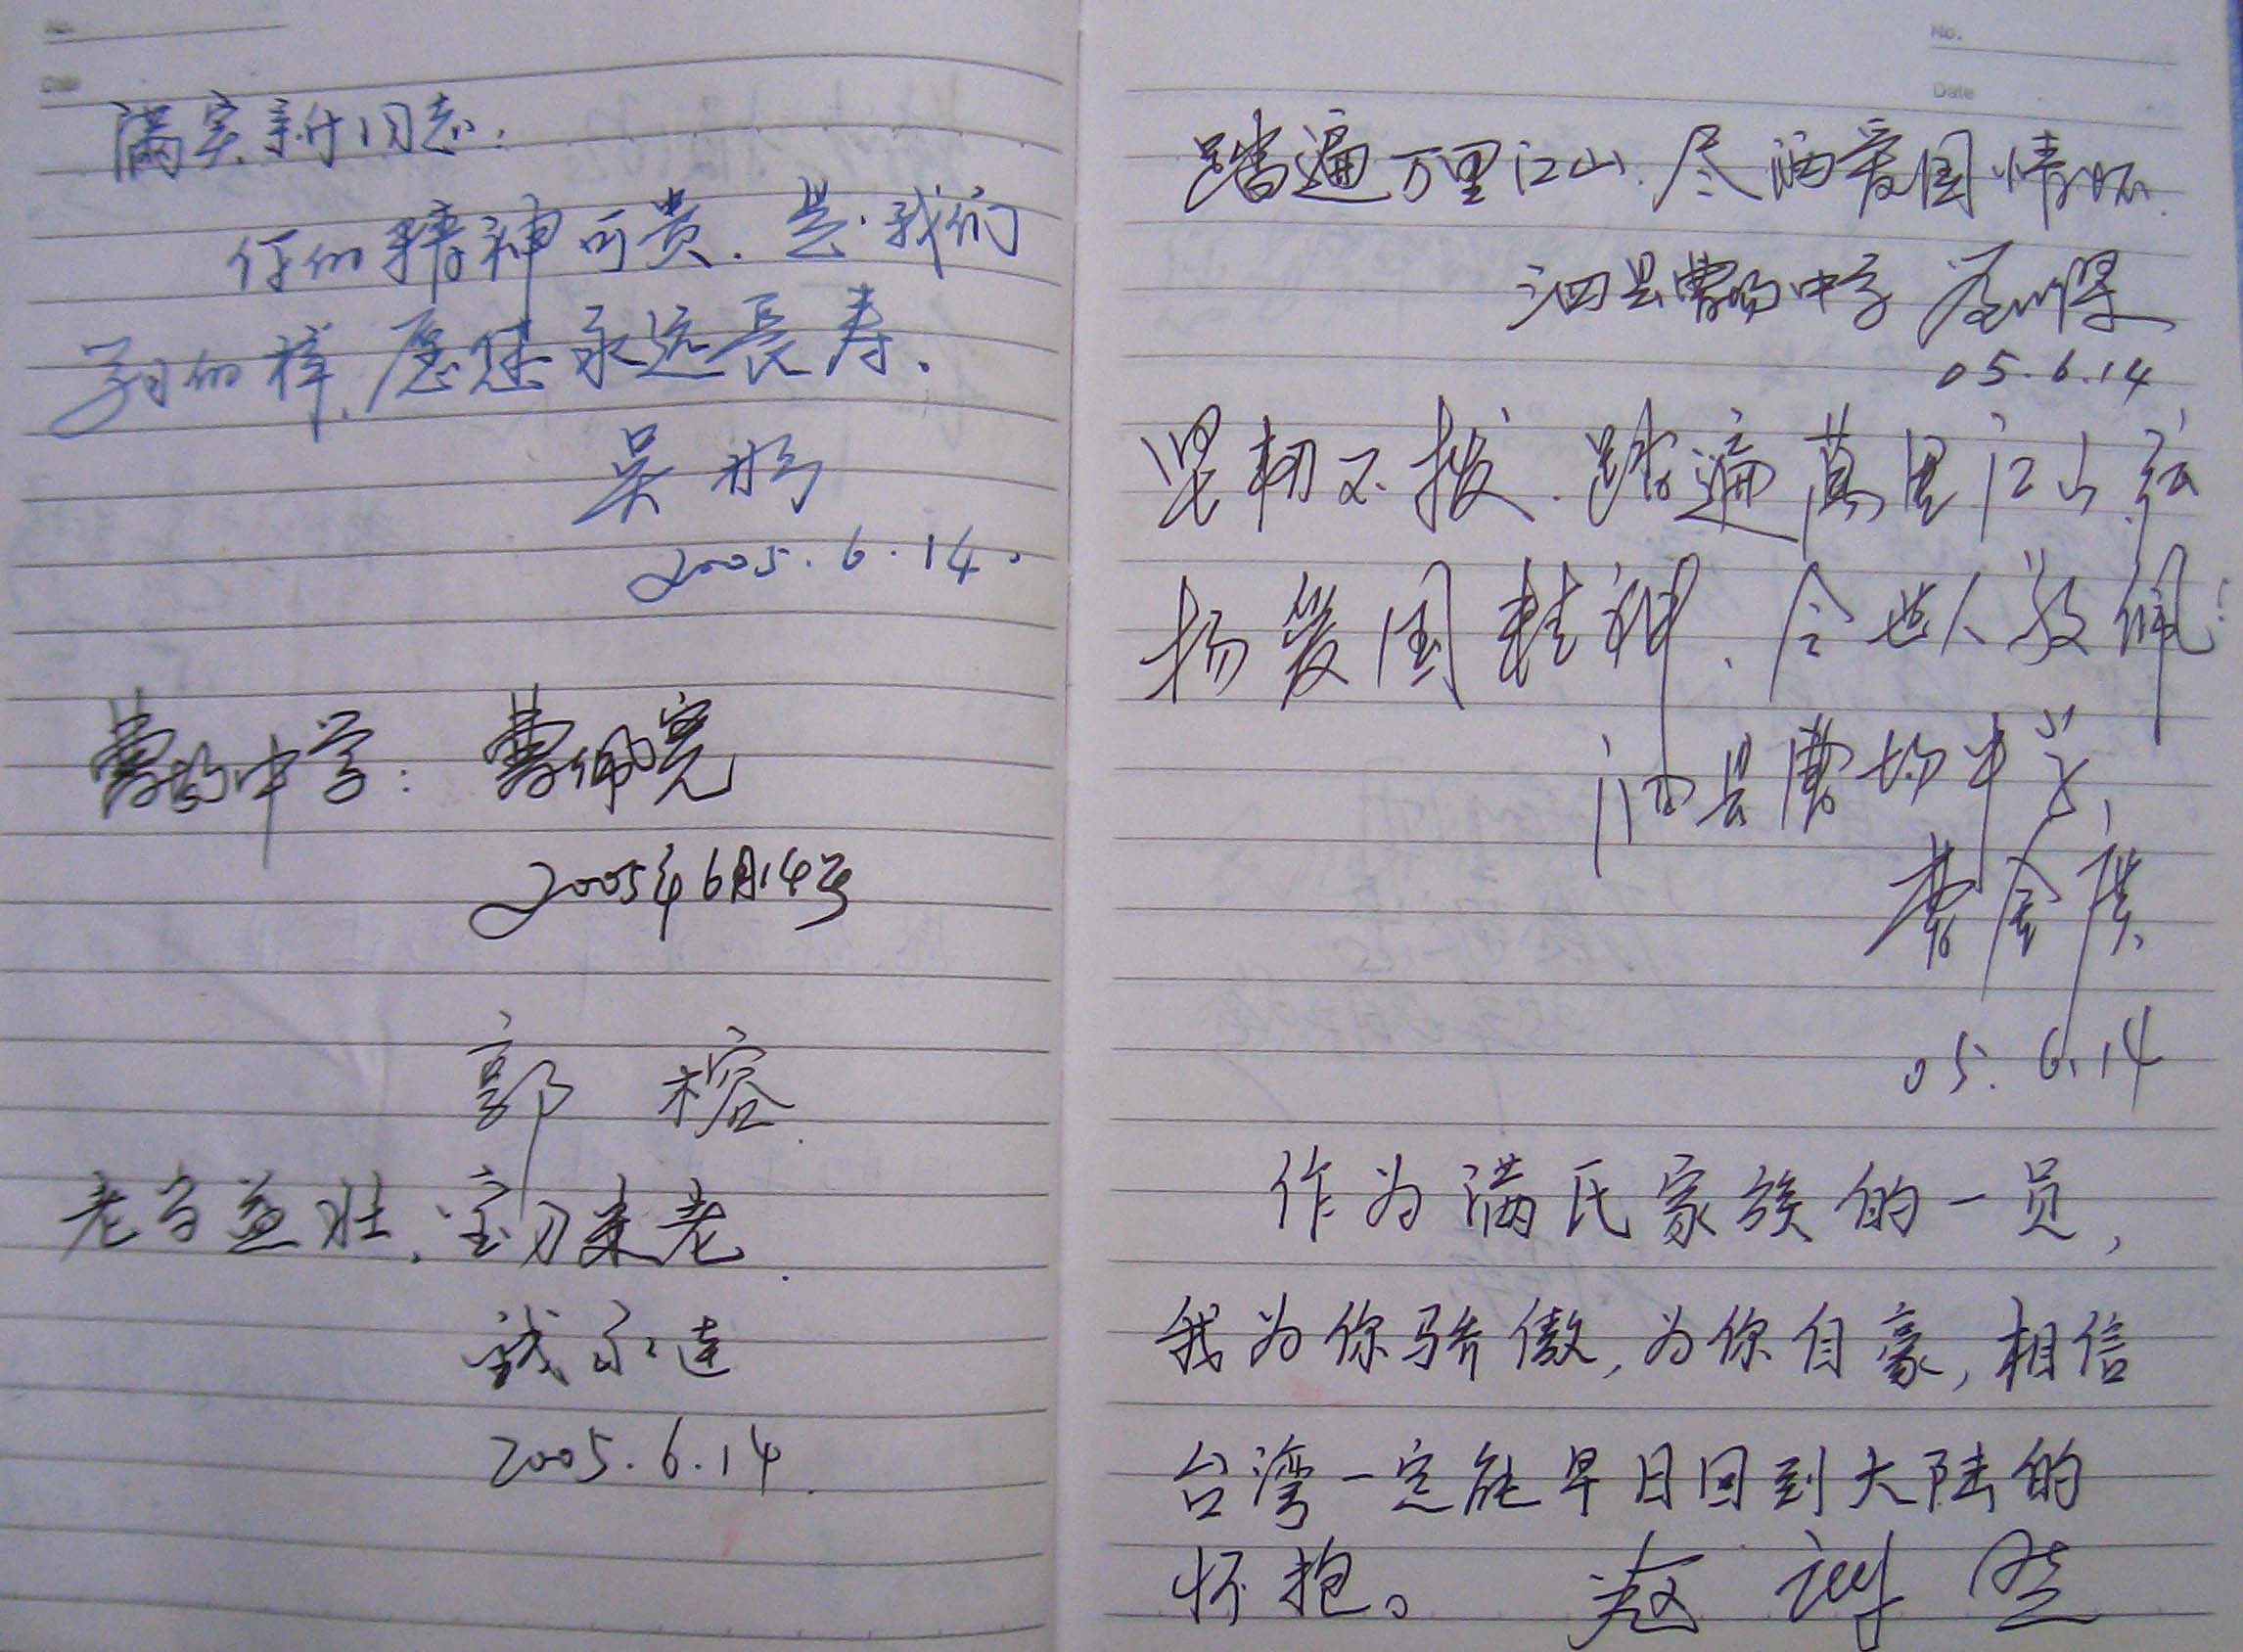 满实新同志:
你的精神可贵.是我们
学习的榜样.愿您永远長寿.
吴
2005.6.14.
曹场中学: 曹佩宪
2005年6月14号
郭 榕
老当益壮.宝刀未老.
钱永连
2005.6.14.
No.
Date
踏遍万里江山.尽洒爱国情怀.
泗县曹场中学
05.6.14
坚韧不拔.踏遍萬里江山.弘
扬爱国精神.令世人敬佩!
泗县曹场中学
05.6.14
作为满氏家族的一员,
我为你骄傲,为你自豪,相信
台湾一定能早日回到大陆的
怀抱。